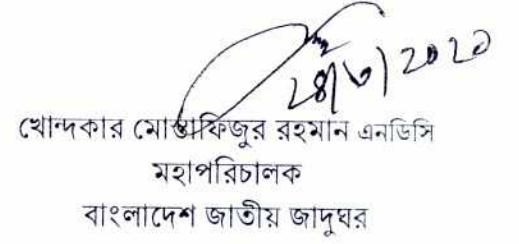 ২৪/৬/২০২১
খোন্দকার মোস্তাফিজুর রহমান এনডিসি
মহাপরিচালক
বাংলাদেশ জাতীয় জাদুঘর